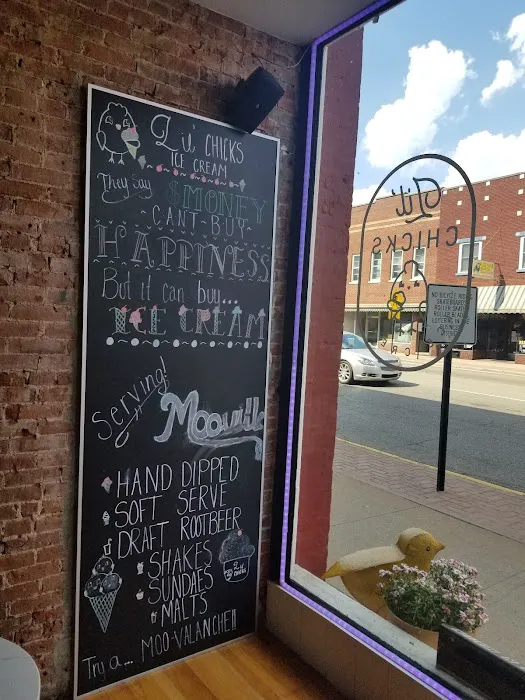 Lil' CHICKS
ICE CREAM
They say
$MONEY
CAN'T BUY
HAPPINESS
But it can buy...
ICE CREAM
Serving!
Mooville
HAND DIPPED
SOFT SERVE
DRAFT ROOTBEER
SHAKES
SUNDAES
MALTS
Try a... MOO-VALANCHE!!
Lil'
CHICKS